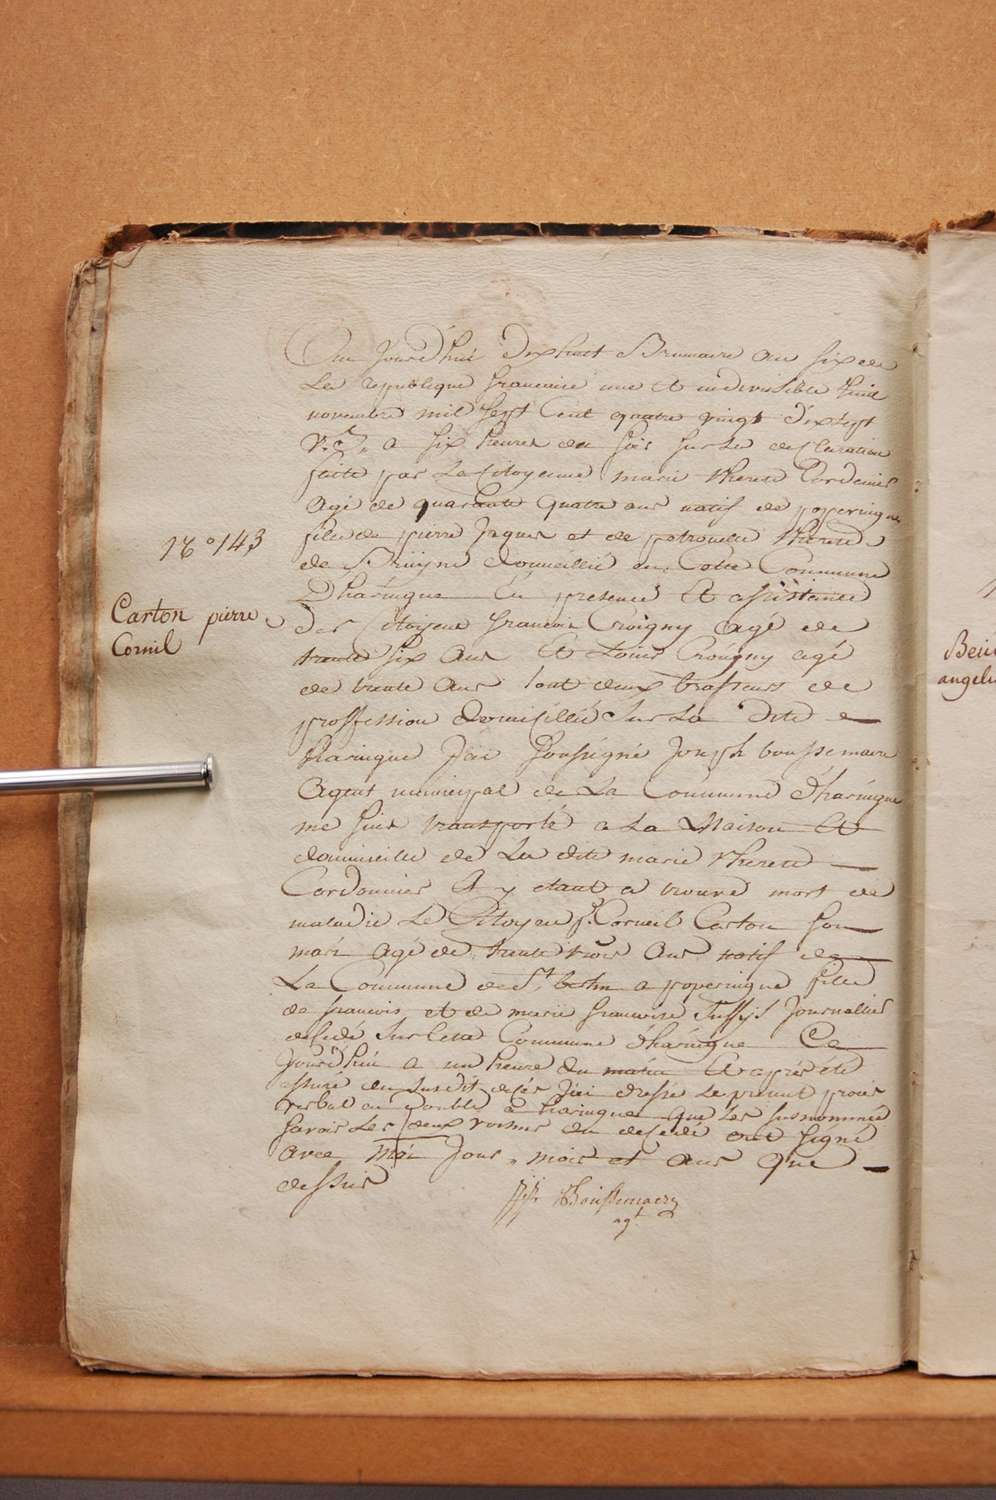 Au Jourd'hui dixhuit Brumaire an six de
La republique francaise une et indivisible huit
novembre mil sept Cent quatre vingt dixsept
v. st. a six heures du soir sur La declaration
faite par La Citoyenne marie therese Cordonnier
agé de quarante quatre ans natif de poperingue
fille de pierre Jaques et de petronelle therese
de Bruÿne domicillié en Cette Commune
D'haringue En presence et assistance
des Citoyens francois Croigny agé de
trente six ans et Louis Croigny agé
de trente ans tout deux brasseurs de
proffession domicillié sur La dite
haringue J'ai soussigné Joseph boussemaere
Agent municipal de La Commune d'haringue
me suis transporté a La Maison et
domicille de La dite marie therese
Cordonnier et y etant a trouvé mort de
maladie Le Citoyen p. Corneil Carton son
mari agé de trente trois ans natif de
La Commune de St. bertin a poperingue fils
de francois et de marie francoise journallier
decedé sur Cette Commune d'haringue Ce
Jourd'hui a un heure du matin Et après été
assuré du susdit decés J'ai dressé Le present procès
verbal en double a haringue que Les susnommé
savoir Les deux voisins du decedé ont signé
avec moi Jour, mois et ans que
dessus
Boussemaere
agt
N° 143
Carton pierre
Cornil
Beii
angeli